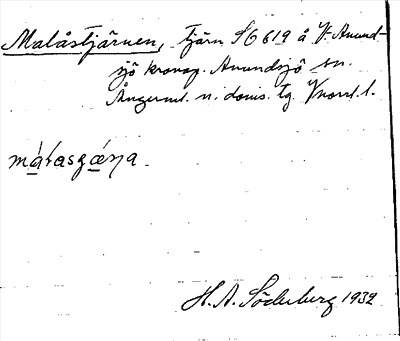 Malåstjärnen, tjärn SO 619 å V. Anund-
sjö kronop. Anundsjö sn.
Ångerml. n. doms. tg. Vnorrl. l.
H. A. Söderberg 1932